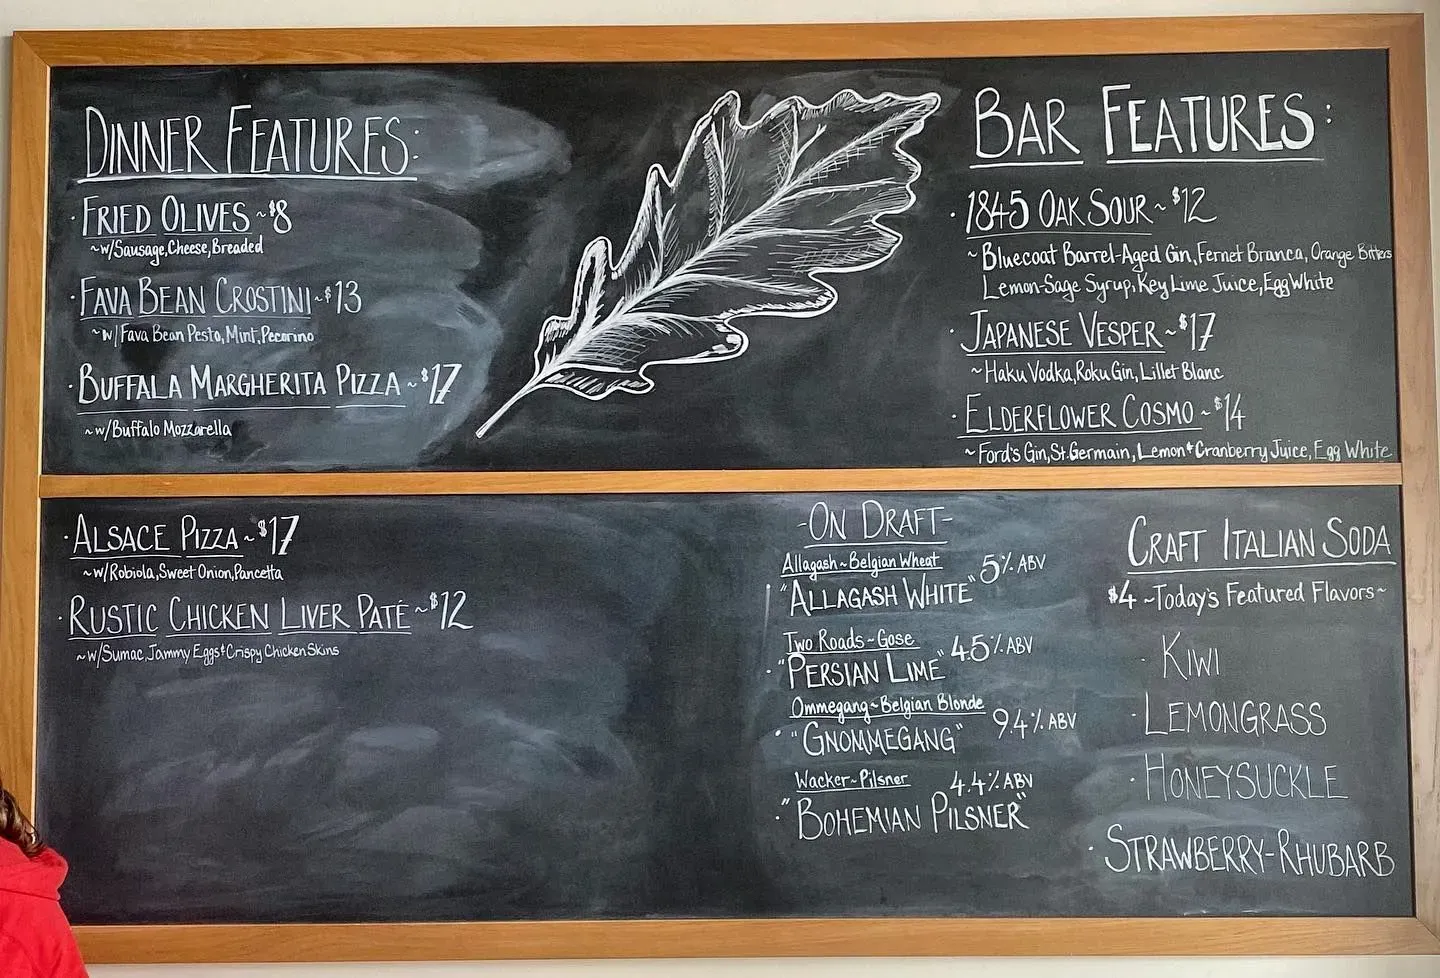 DINNER FEATURES:
· FRIED OLIVES ~ $8
~w/Sausage, Cheese, Breaded
· FAVA BEAN CROSTINI ~ $13
~w/Fava Bean Pesto, Mint, Pecorino
· BUFFALA MARGHERITA PIZZA ~ $17
~w/Buffalo Mozzarella
· ALSACE PIZZA ~ $17
~w/Robiola, Sweet Onion, Pancetta
· RUSTIC CHICKEN LIVER PATÉ ~ $12
~w/Sumac, Jammy Eggs + Crispy Chicken Skins
BAR FEATURES:
· 1845 OAK SOUR ~ $12
~ Bluecoat Barrel-Aged Gin, Fernet Branca, Orange Bitters
Lemon-Sage Syrup, Key Lime Juice, Egg White
· JAPANESE VESPER ~ $17
~Haku Vodka, Roku Gin, Lillet Blanc
· ELDERFLOWER COSMO ~ $14
~Ford's Gin, St. Germain, Lemon + Cranberry Juice, Egg White
-ON DRAFT-
Allagash ~ Belgian Wheat
"ALLAGASH WHITE" 5% ABV
Two Roads ~ Gose
· "PERSIAN LIME" 4.5% ABV
Ommegang ~ Belgian Blonde
· "GNOMMEGANG" 9.4% ABV
Wacker ~ Pilsner 4.4% ABV
· "BOHEMIAN PILSNER"
CRAFT ITALIAN SODA
$4 ~Today's Featured Flavors~
· KIWI
· LEMONGRASS
· HONEYSUCKLE
· STRAWBERRY-RHUBARB